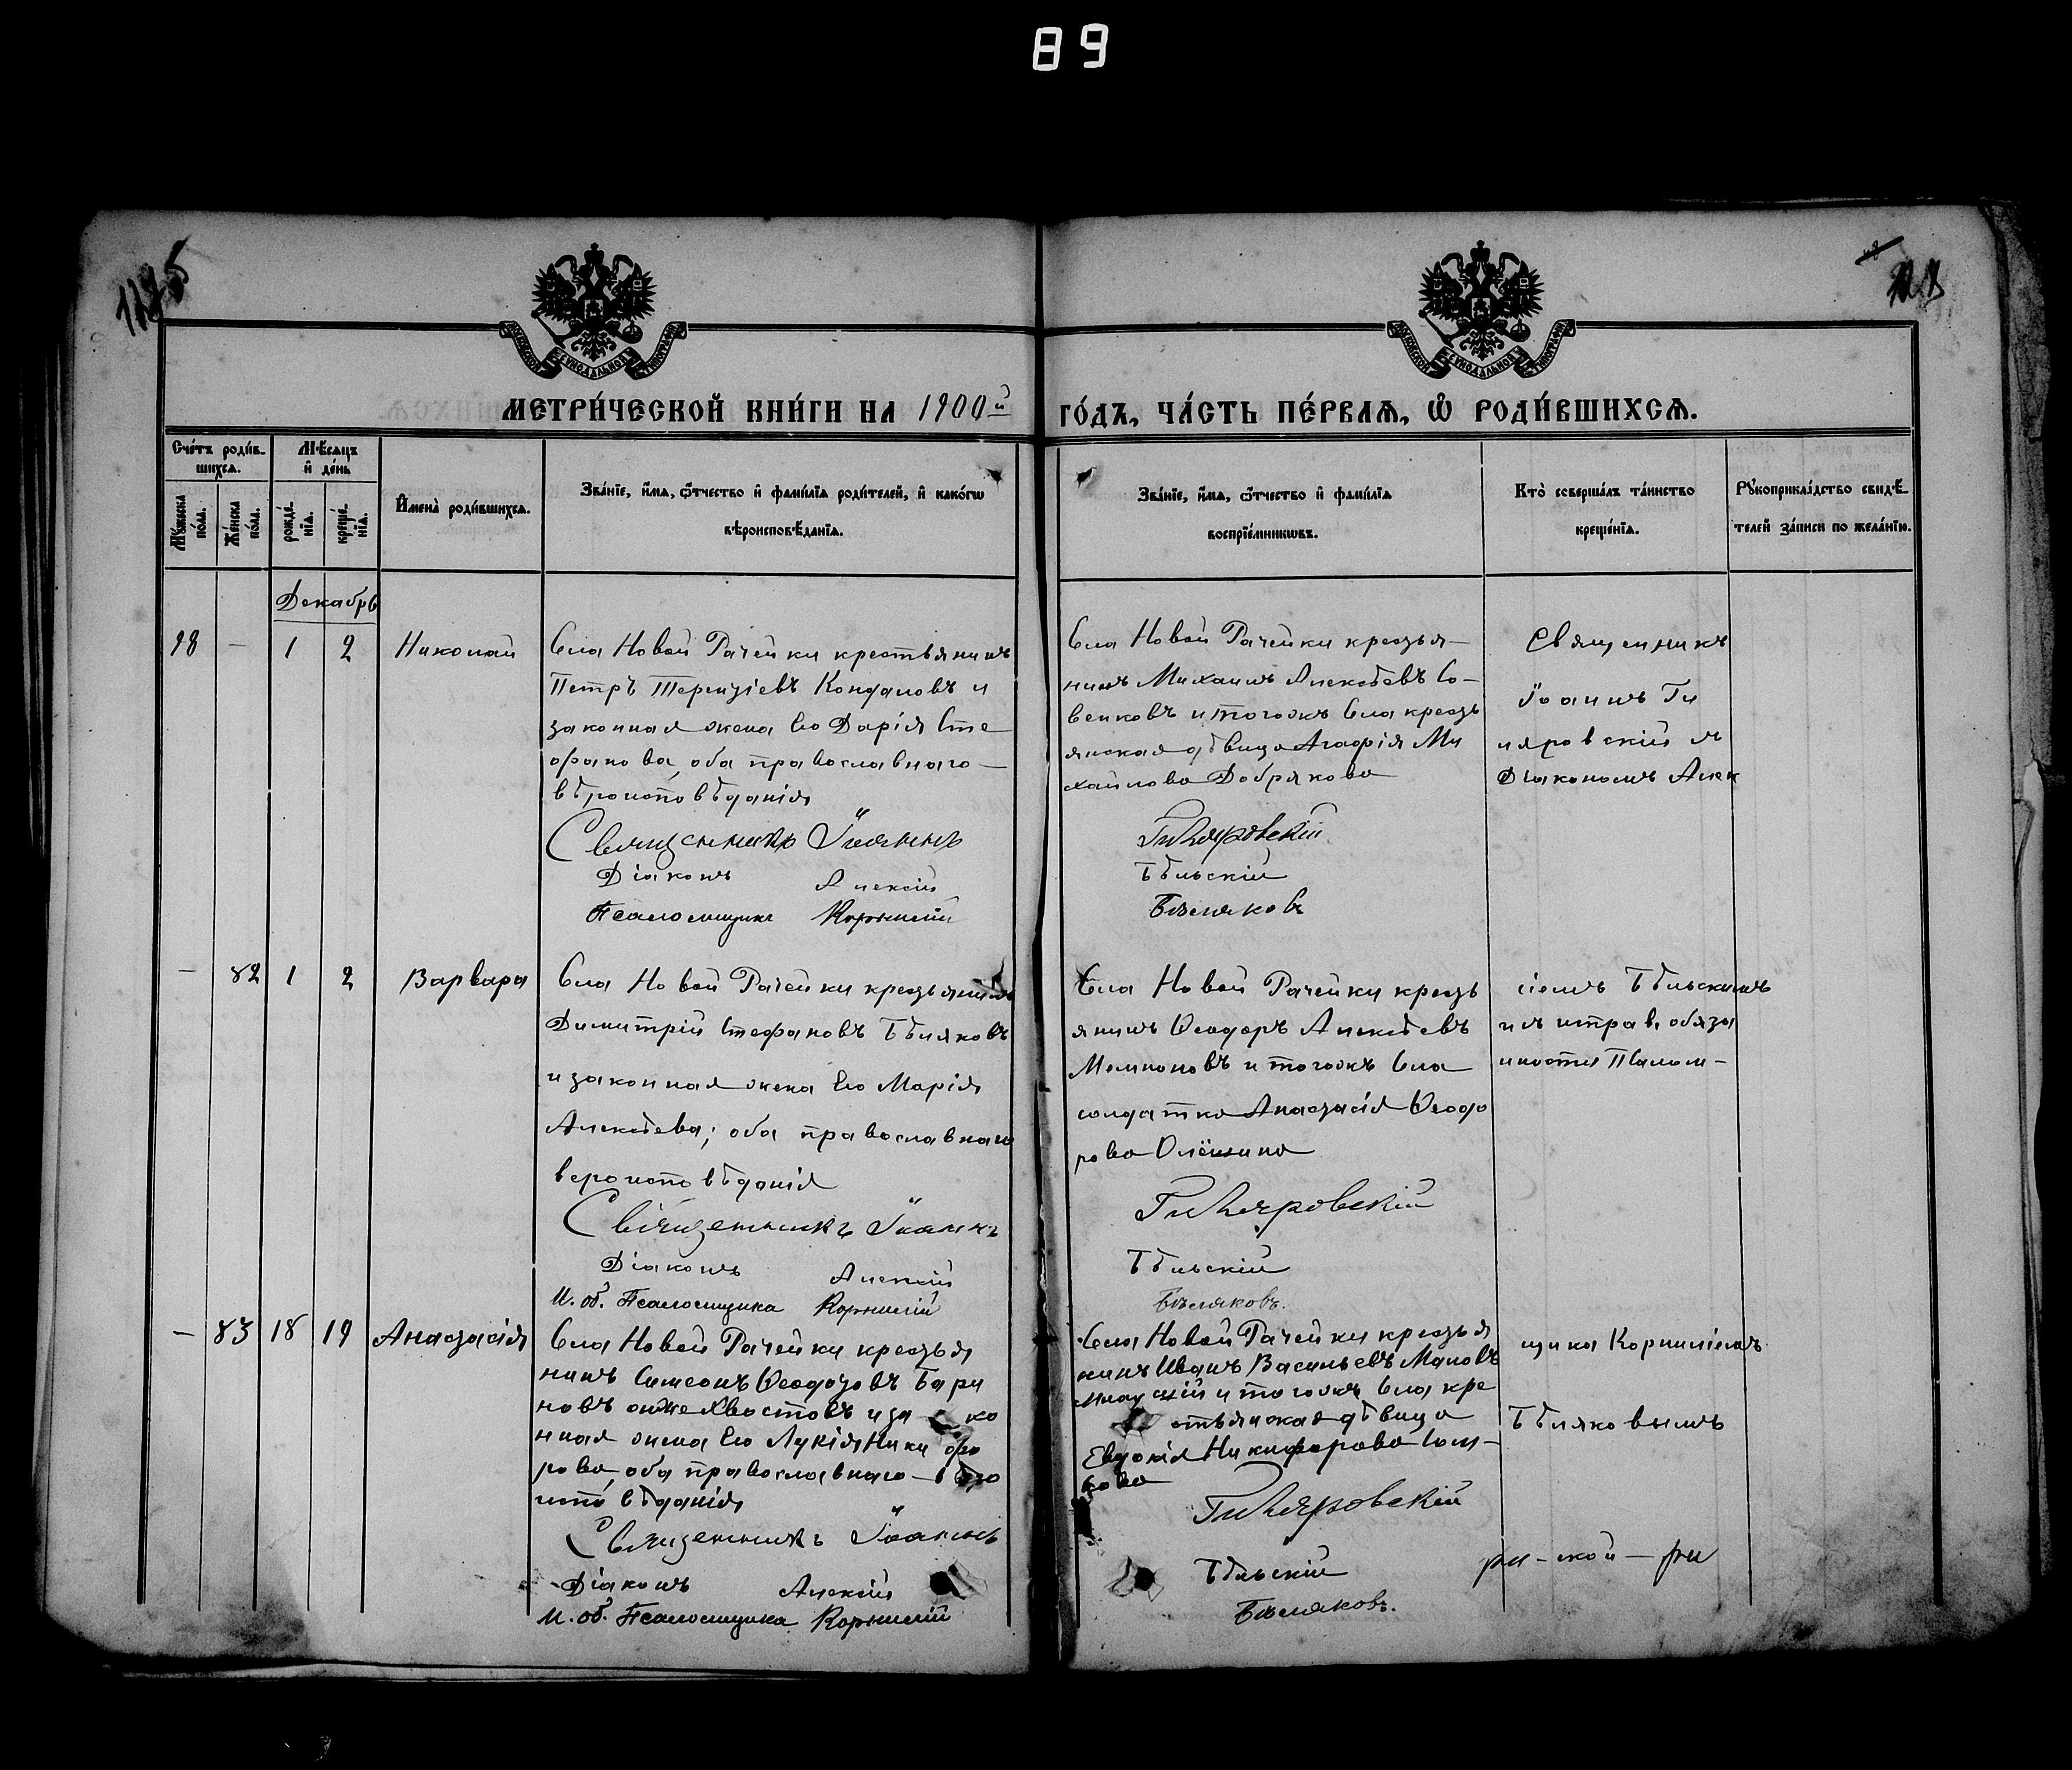 89
МЕТРИ́ЧЕСКОЙ КНИ́ГИ НА 1900й ГО́ДЪ, ЧА́СТЬ ПЕ́РВАѦ, Ѡ҆ РОДИ́ВШИХСѦ.
Сче́тъ роди́в-
шихсѧ.
Мѣ́сѧцъ
и҆ де́нь
Мꙋ́жеска по́ла.
Же́нска по́ла.
рожде́-
нїѧ.
креще́-
нїѧ.
И҆мена̀ роди́вшихсѧ.
Зва́нїе, и҆́мѧ, ѻ҆́тчество и҆ фамилїѧ роди́телей, и҆ како́гѡ
вѣроисповѣ́данїѧ.
Зва́нїе, и҆́мѧ, ѻ҆́тчество и҆ фами́лїѧ
воспрїе́мникѡвъ.
Кто̀ соверша́лъ та́инство
креще́нїѧ.
Рꙋкоприкла́дство свидѣ́-
телей за́писи по жела́нїю.
Декабрь
98 — 1 2 Николай
Села Новой Рачейки крестьянинъ
Петръ Терентіевъ Кондаловъ и
законная жена его Дарія Сте
фанова, оба православнаго —
вѣроисповѣданія
Священникъ Іоаннъ
Діаконъ Алексій
Псаломщикъ Корнилій
Села Новой Рачейки крестья—
нинъ Михаилъ Алексѣевъ Со-
венковъ и тогожъ села кресть
янская дѣвица Агафія Ми
хайлова Добрякова
Гиляровскій
Бѣльскій
Бѣляковъ
Священникъ
Іоаннъ Ги
ляровскій съ
Діакономъ Алек
— 82 1 2 Варвара
Села Новой Рачейки крестьянинъ
Димитрій Стефановъ Бѣляковъ
и законная жена его Марія
Алексѣева; оба православнаго
вероисповѣданія
Священникъ Іоаннъ
Діаконъ Алексій
И. об. Псаломщика Корнилій
Села Новой Рачейки кресть
янинъ Ѳеодоръ Алексѣевъ
Мемноновъ и тогожъ села
солдатка Анастасія Ѳеодо
рова Олёшина
Гиляровскій
Бѣльскій
Бѣляковъ.
сіемъ Бѣльскимъ
и съ исправ. обяза
нности Псалом-
— 83 18 19 Анастасія
Села Новой Рачейки крестья
нинъ Симеонъ Ѳеодотовъ Бари
новъ онже Хвостовъ и за ко
нная жена его Лукія Ники фо
рова, оба православнаго — вѣро
испо вѣданія
Священникъ Іоаннъ
Діаконъ Алексій
И. об. Псаломщика Корнилій
Села Новой Рачейки крестья
нинъ Иванъ Васильевъ
и тогожъ села кре
стьянская дѣвица
Евдокія Никифорова
Гиляровскій
Бѣльскій
Бѣляковъ.
щика Корниліемъ
Бѣляковымъ